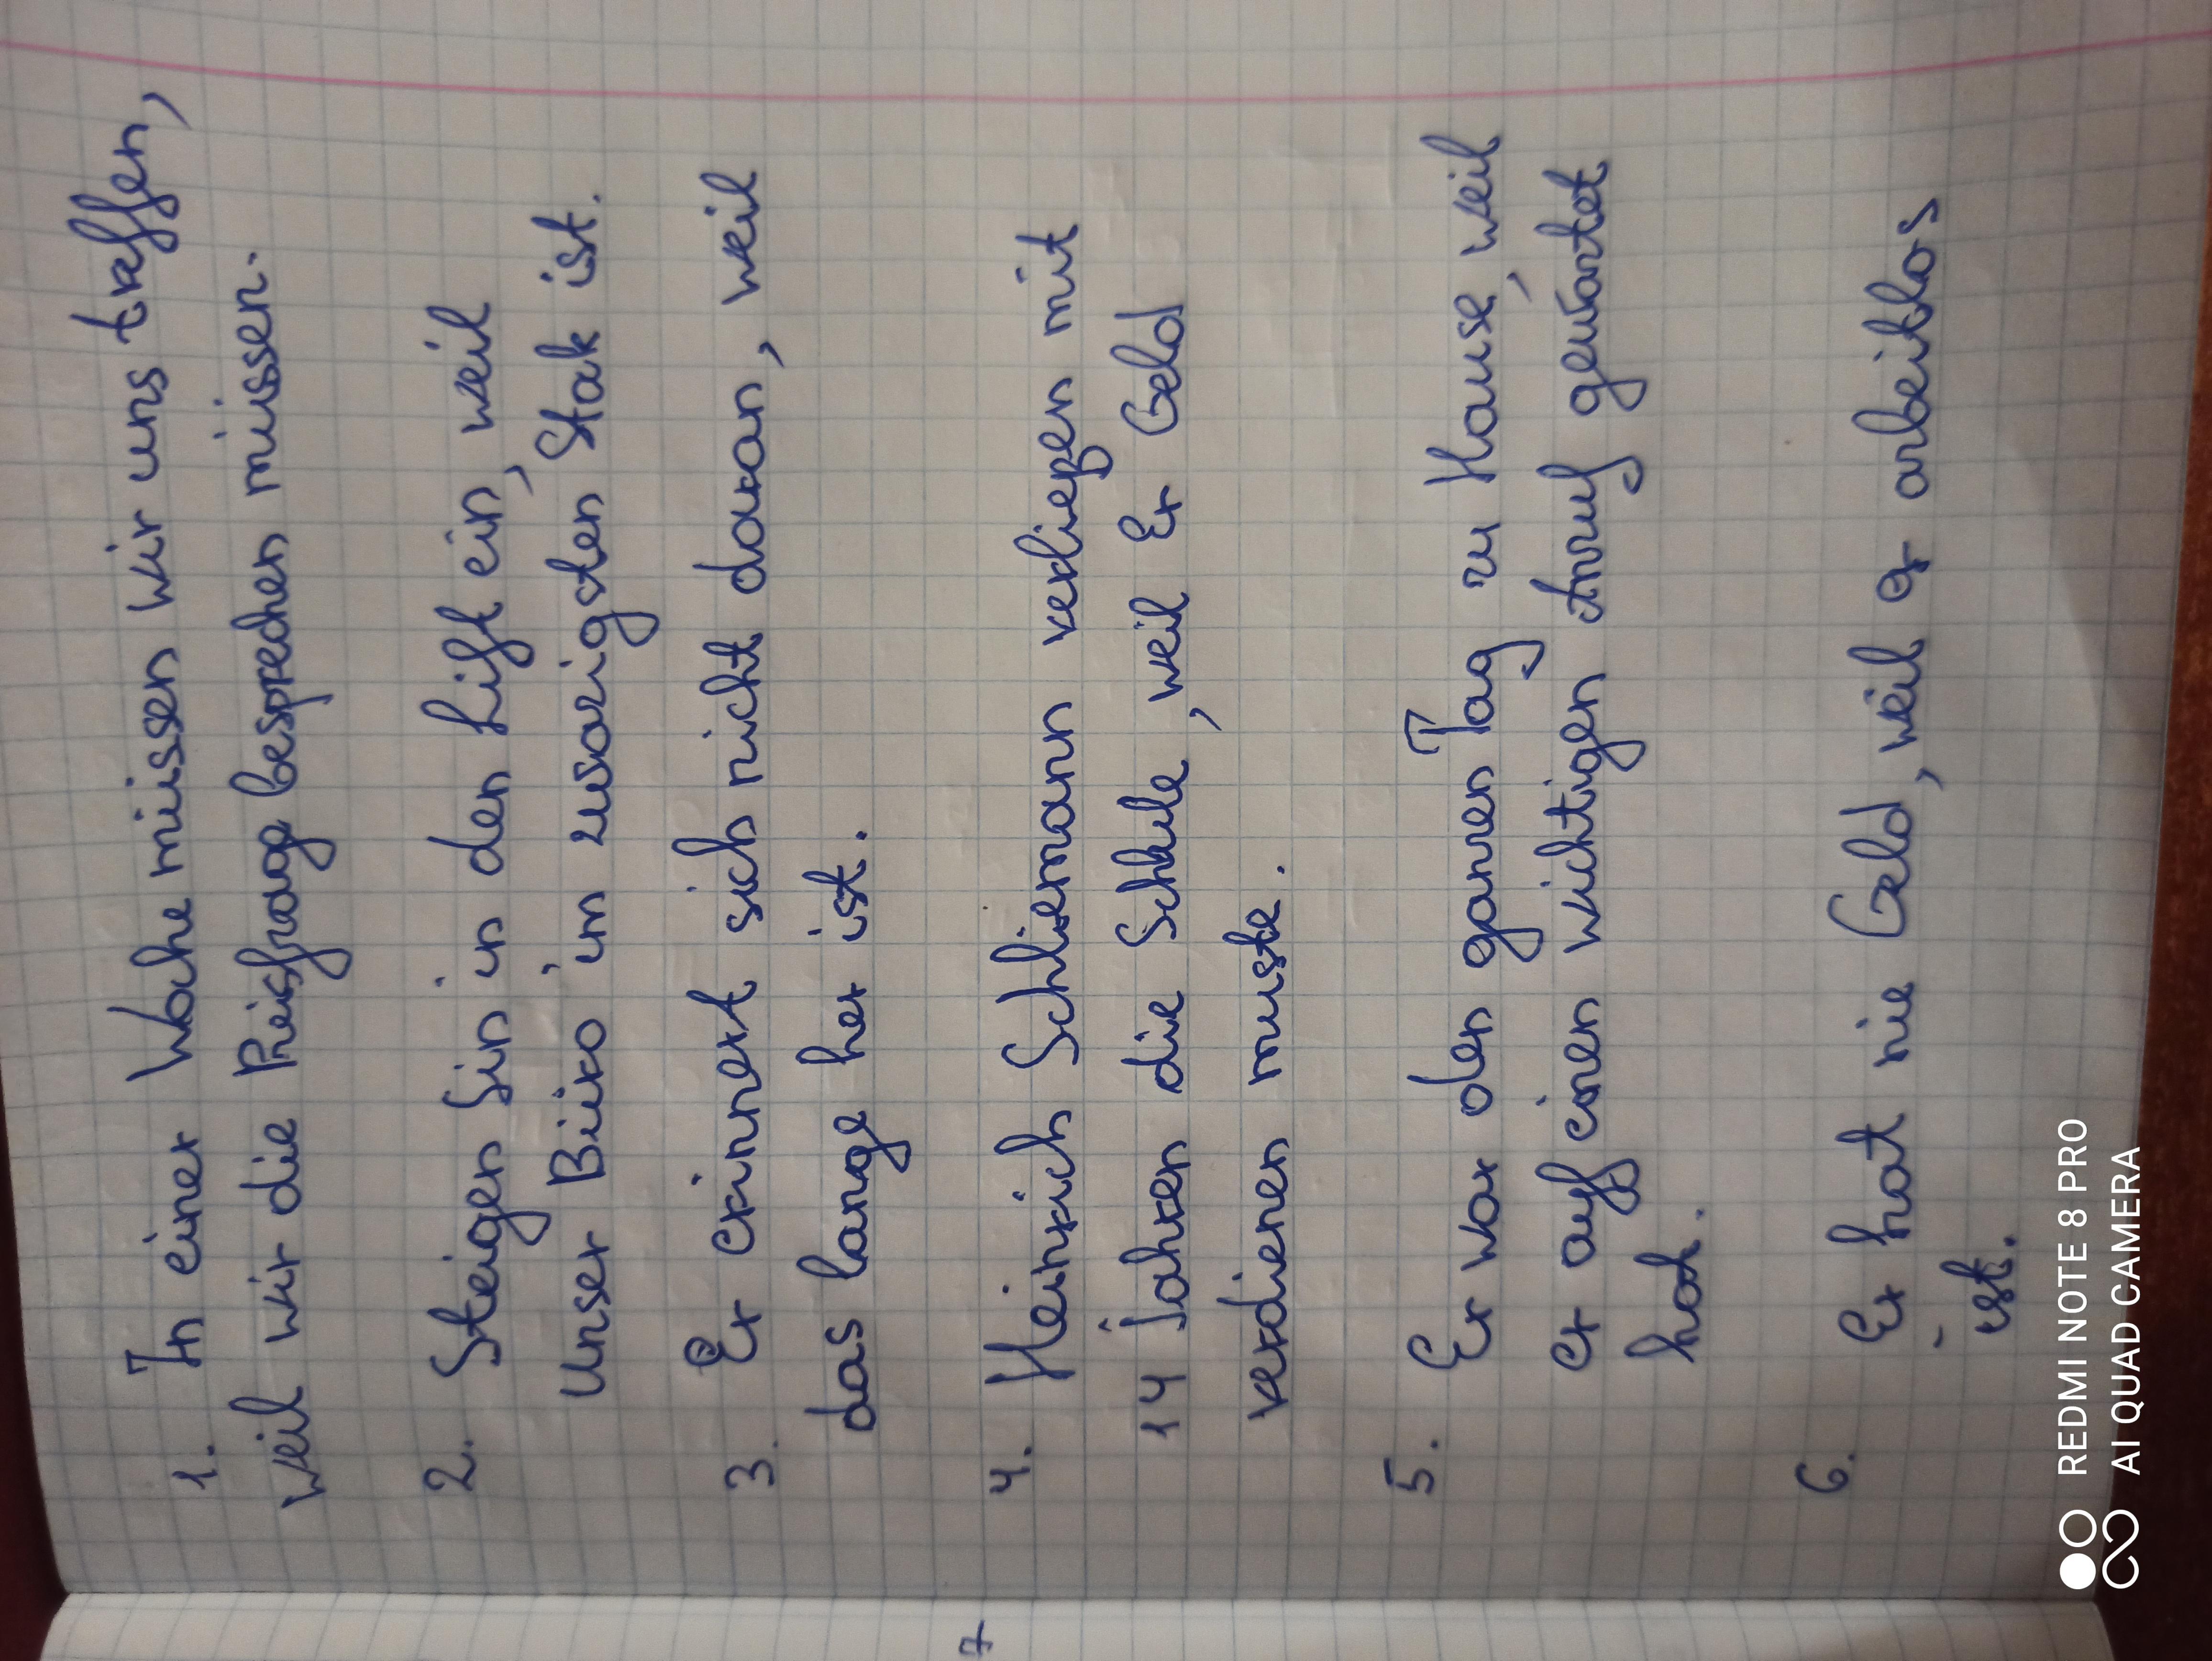 1. In einer Woche müssen wir uns treffen,
weil wir die Preisfrage besprechen müssen.
2. Steigen Sin in den Lift ein, weil
unser Büro im zwanzigsten Stok ist.
3. Er erinnert sich nicht daran, weil
das lange her ist.
4. Heinrich Schliemann verließen mit
14 Jahren die Schule, weil Er Geld
verdienen muste.
5. Er war den ganzen Tag zu Hause, weil
er auf einen wichtigen Anruf gewartet
hat.
6. Er hat nie Geld, weil er arbeitlos
ist.
7
REDMI NOTE 8 PRO
AI QUAD CAMERA